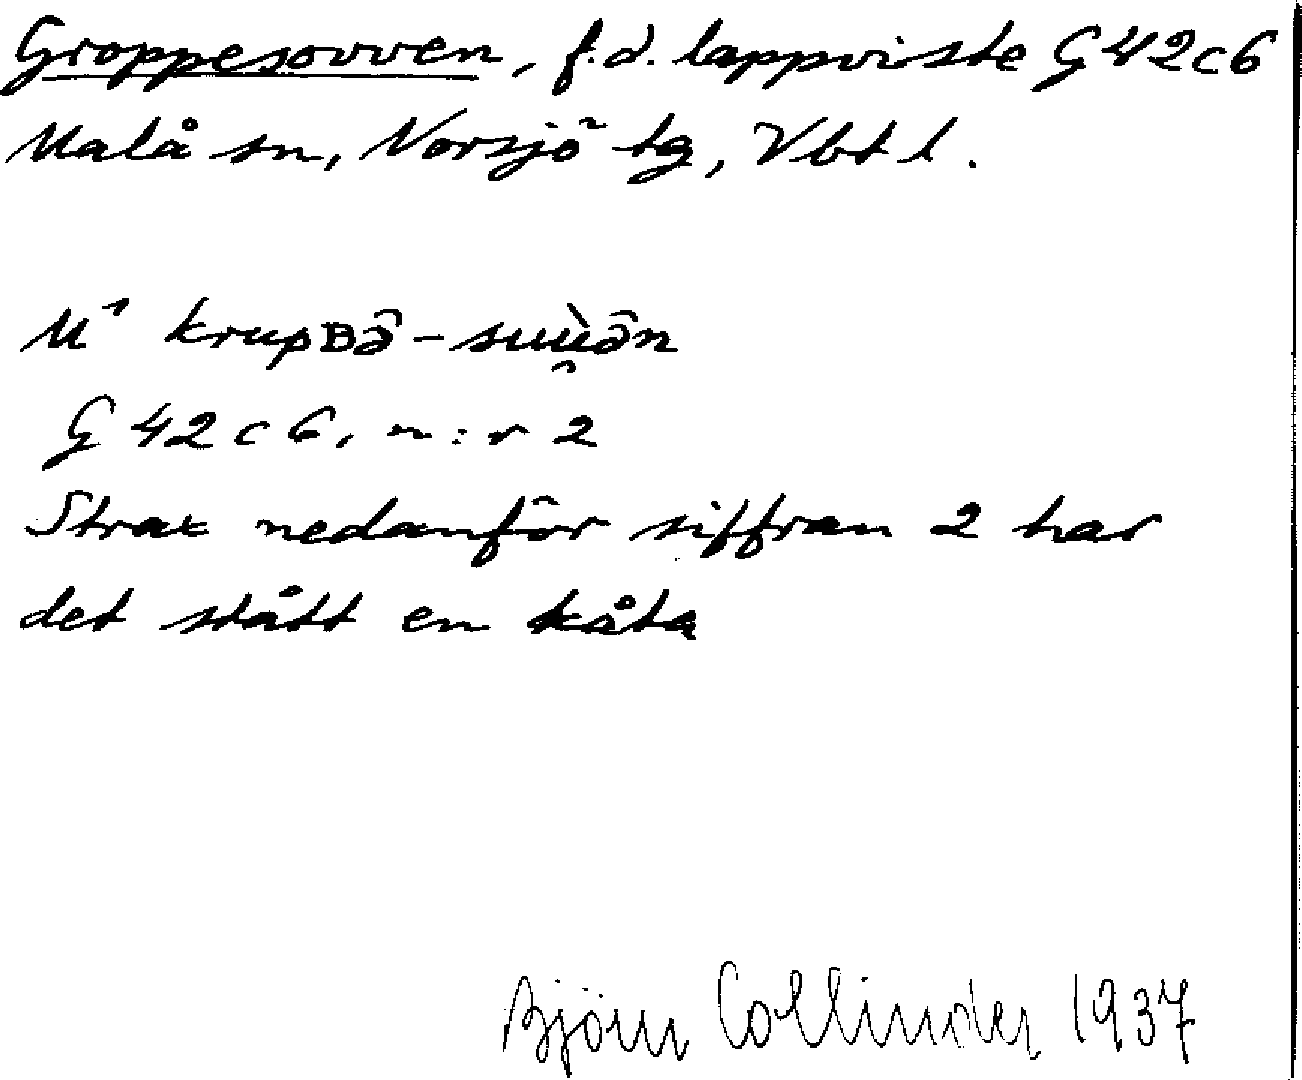 Groppesovven, f.d. lappviste G42c6
Malå sn, Norsjö tg, Vbt l.
M¹ krupʙə̂-suù̯ə̂n
G 42 c 6, n:r 2
Strax nedanför siffran 2 har
det stått en kåta
Björn Collinder 1937